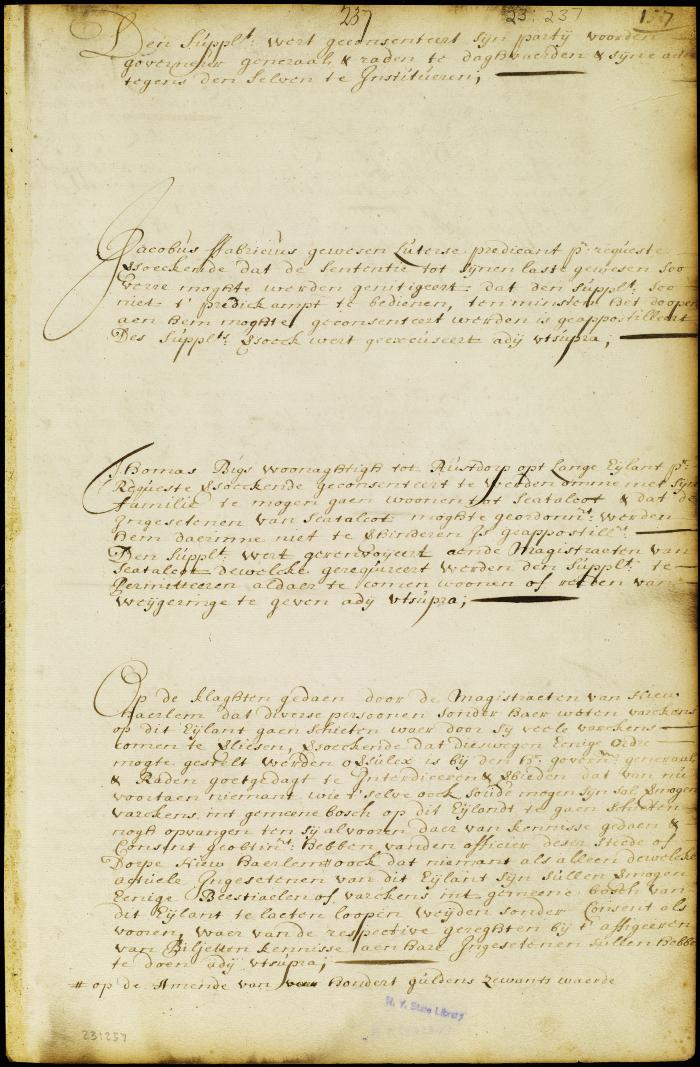 237 23:237 157
Den Supplt: wert geconsenteert syn partÿ voorden
gouverneur generaal & raden te daghvaerden & syne actie
tegens den selven te Institueren;
Jacobus ffabricius gewesen Luterse predicant pr: requeste
versoeckende dat de sententie tot synen laste gewesen soo
verre moghte werden gemitigeert dat den Supplt: soo
niet t' predickampt te bedienen, ten minsten het doopen
aen hem moghte geconsenteert werden is geappostilleert
Des Supplts: versoeck wert geexcuseert adÿ vtsupra;
Thomas Bigs woonaghtigh tot Rustdorp opt Lange Eÿlant pr:
Requeste versoeckende geconsenteert te werden omme met syne
familie te mogen gaen woonen tot Seatalcot & dat de
Ingesetenen van Seatalcot moghte geordonnt: werden
hem daerinne niet te verhinderen Is geappostillt:
Den Supplt: wert gerenvoÿeert aende Magistraeten van
Seatalcot dewelcke gerequireert werden den Supplt: te
Permitteeren aldaer te comen woonen of reden van
weÿgeringe te geven adÿ vtsupra;
Op de klaghten gedaen door de Magistraeten van Nieuw
haerlem dat diverse persoonen sonder haer weten varckens
op dit Eÿlant gaen schieten waer door sy veele varckens
comen te verliesen, versoeckende dat dieswegen Eenige ordre
mogte gestelt werden soo Sulcx is bÿ den Hr: govern: generael
& Raden goetgedagt te Interdiceren & verbieden dat van nu
voortaen niemant wie t' selve oock soude mogen syn sal vermogen
varckens int gemeene bosch op dit Eÿlandt te gaen schieten
nogh opvangen ten sy alvooren daer van kennisse gedaen &
Consent geobtint: hebben vanden officier deser steede of
Dorpe Nieuw Baerlem # oock dat niemant als alleen dewelcke
actuele Ingesetenen van dit Eÿlant syn sullen vermogen
Eenige Beestiaelen of varckens int gemeene bosch van
dit Eÿlant te laeten loopen weÿden sonder Consent als
vooren, waer van de respective gereghten bÿ t' affigeeren
van Biljetten kennisse aen hare Ingesetenen sullen hebben
te doen adÿ vtsupra;
# op de Amende van hondert guldens zewants waerde
N. Y. State Library
231257